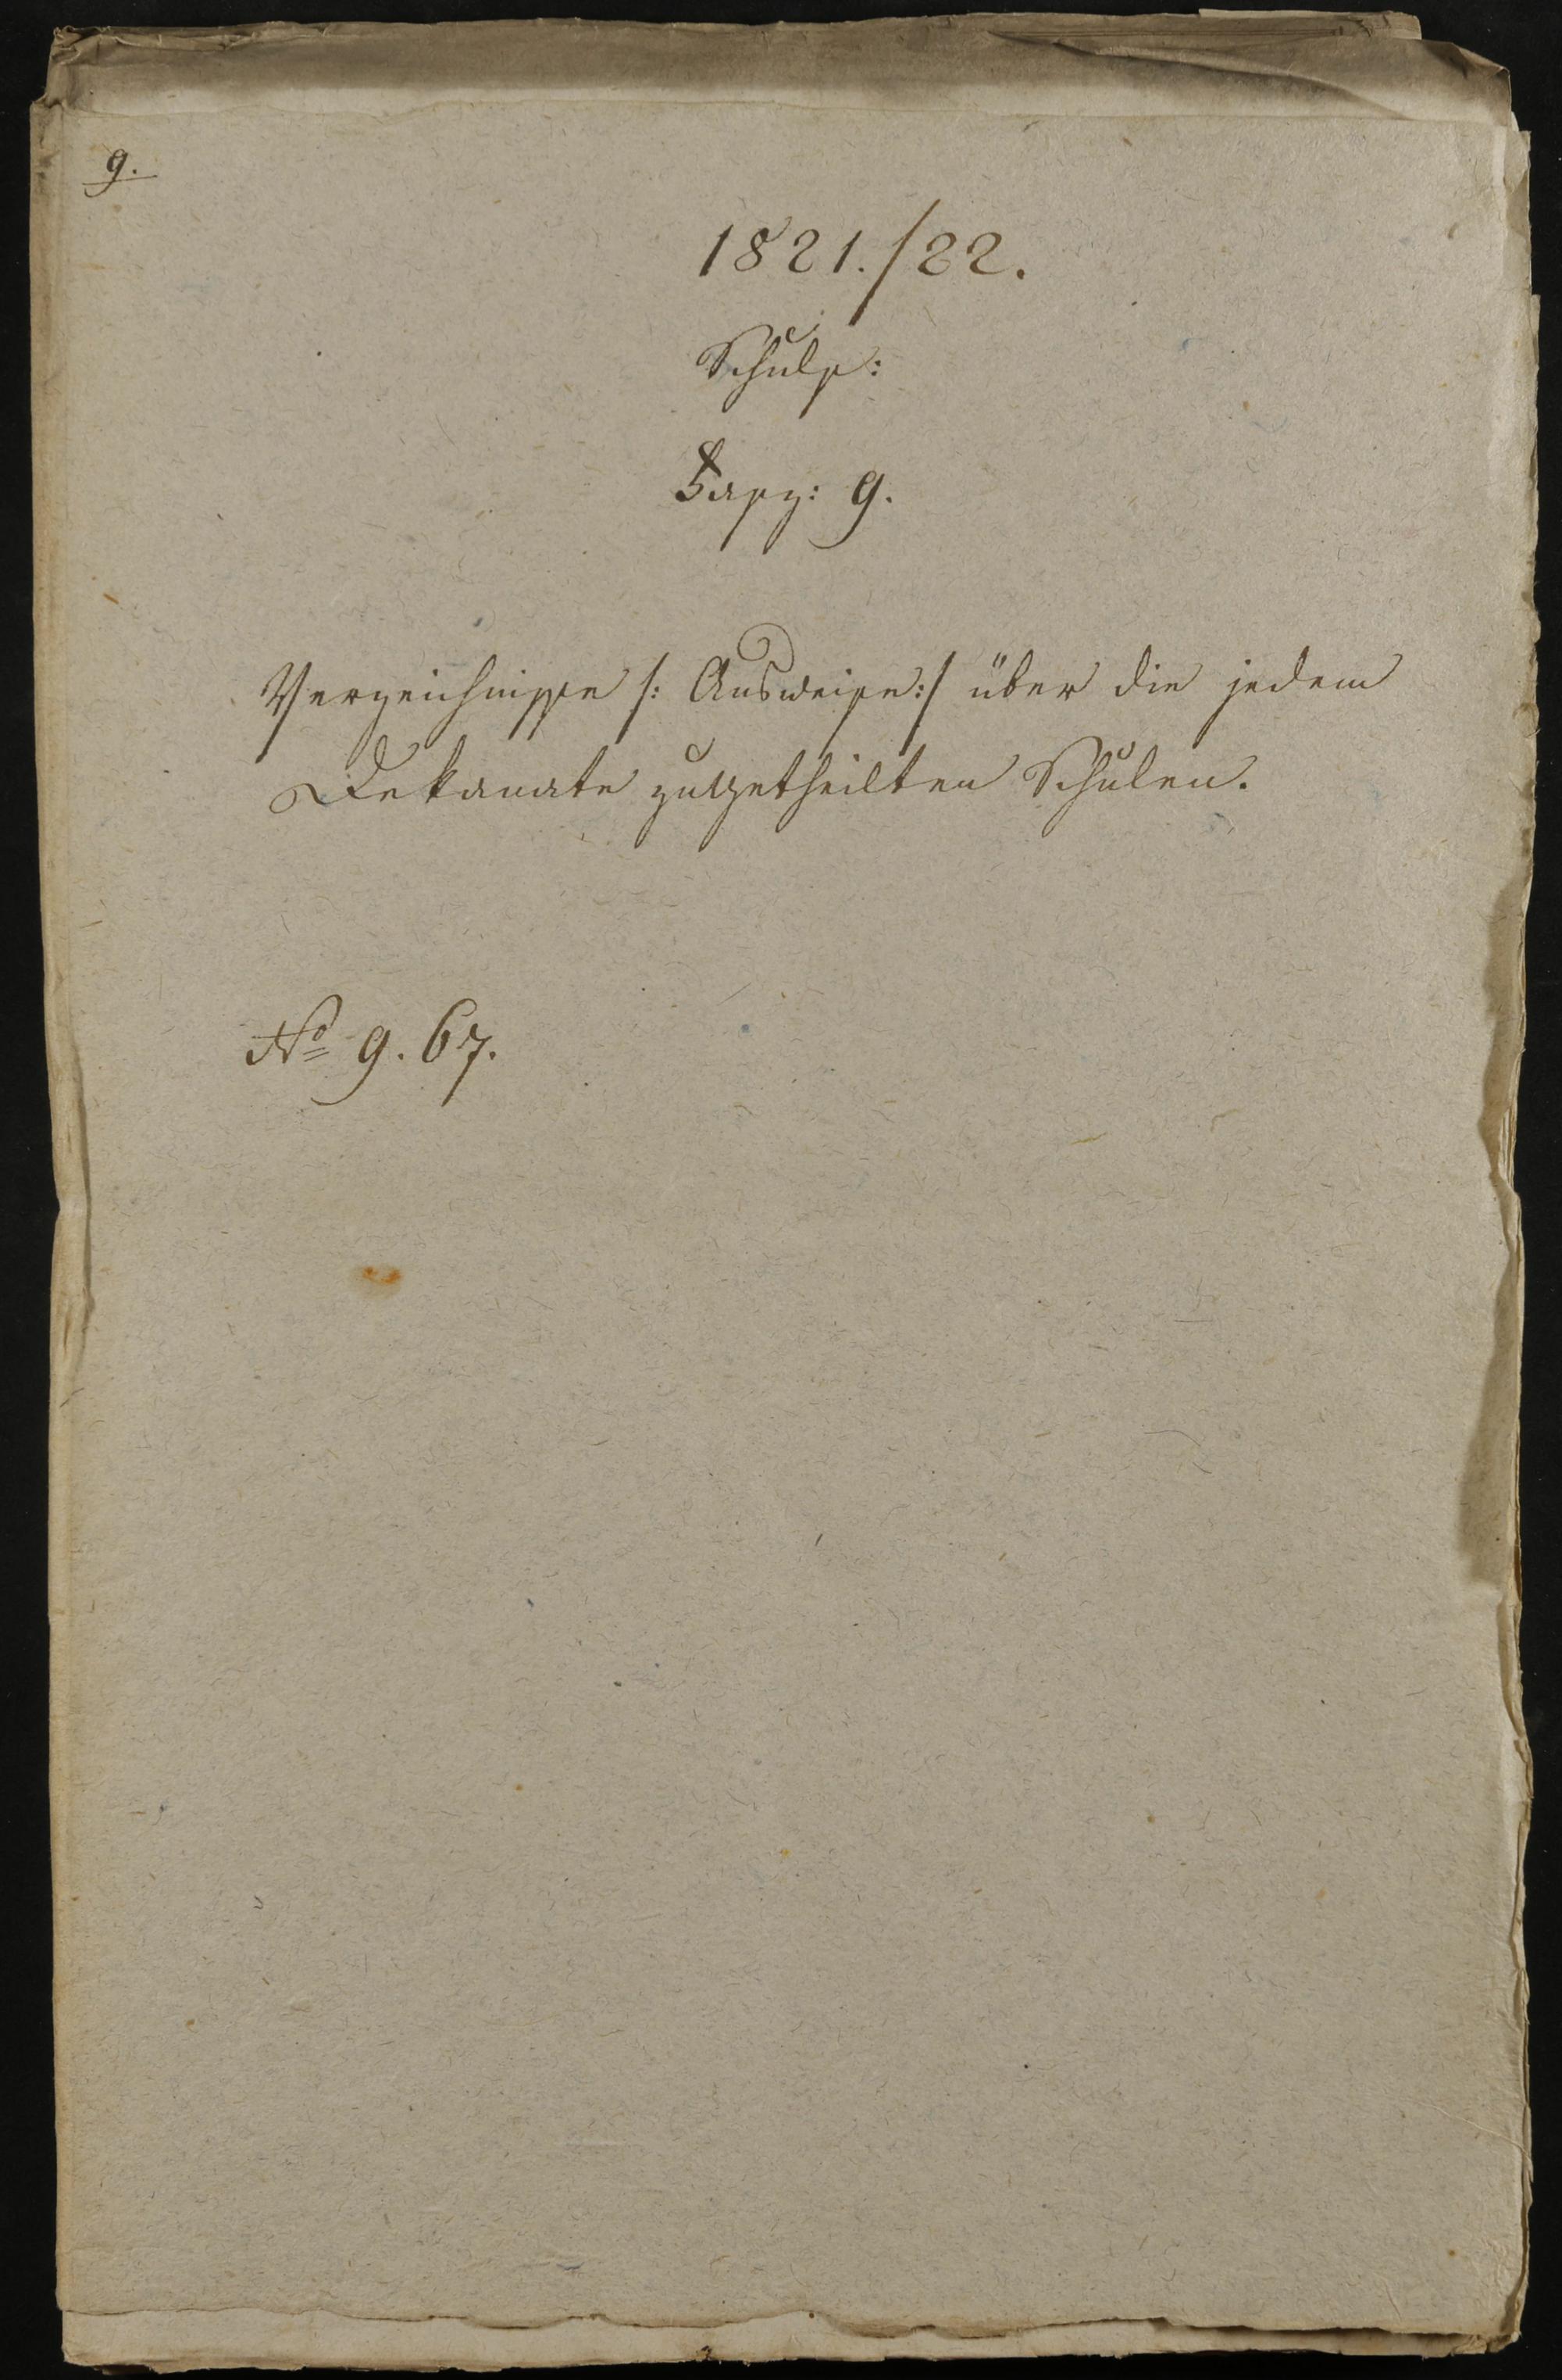 9.
1821./22.
Schuls:
Fasz: 9.
Verzeichnisse /: Ausweise :/ über die jedem
Dekanate zugetheilten Schulen.
No 9. 67.